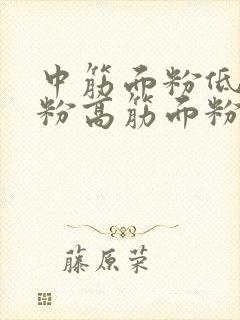 中筋面粉低
粉高筋面粉
藤原荣